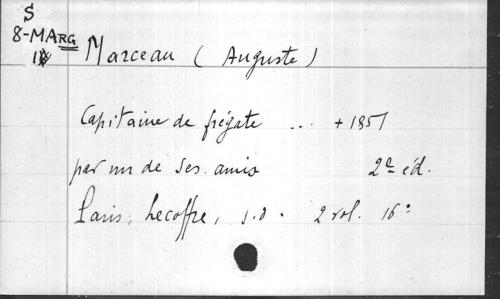 S
8-MARG
Marceau (Auguste)
Capitaine de frégate ... + 1851
par un de ses amis 2e éd.
Paris, Lecoffre, s.d. 2 vol. 16°